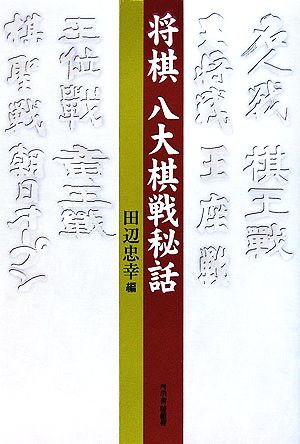 名人戦
棋王戰
王将戦
王座戦
将棋 八大棋戦秘話
田辺忠幸 編
河出書房新社
王位戰
竜王戦
棋聖戦